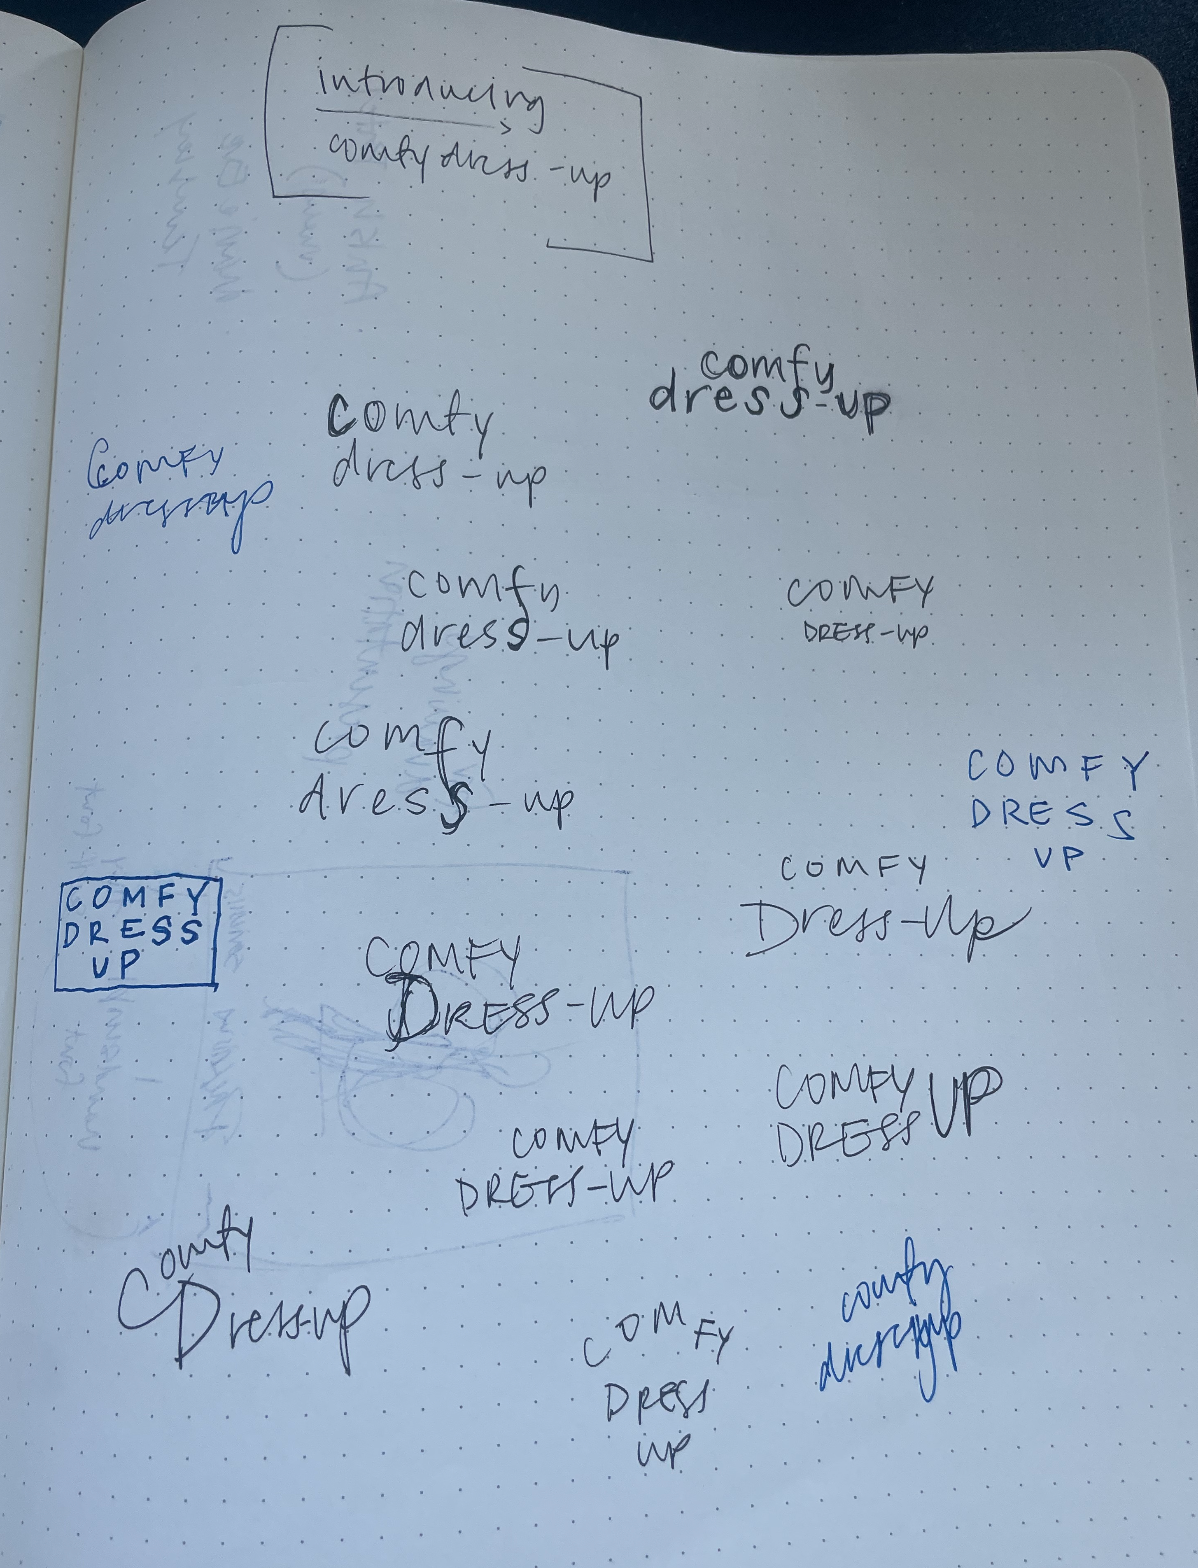 introducing
comfy dress-up
comfy
dress-up
comfy
dress-up
Comfy
dressup
comfy
dress-up
COMFY
DRESS-up
comfy
dress-up
COMFY
DRESS
UP
COMFY
Dress-Up
COMFY
DRESS
UP
COMFY
DRESS-UP
COMFY
DRESS UP
COMFY
DRESS-UP
Comfy
Dress-up
COMFY
DRESS
UP
comfy
dressup